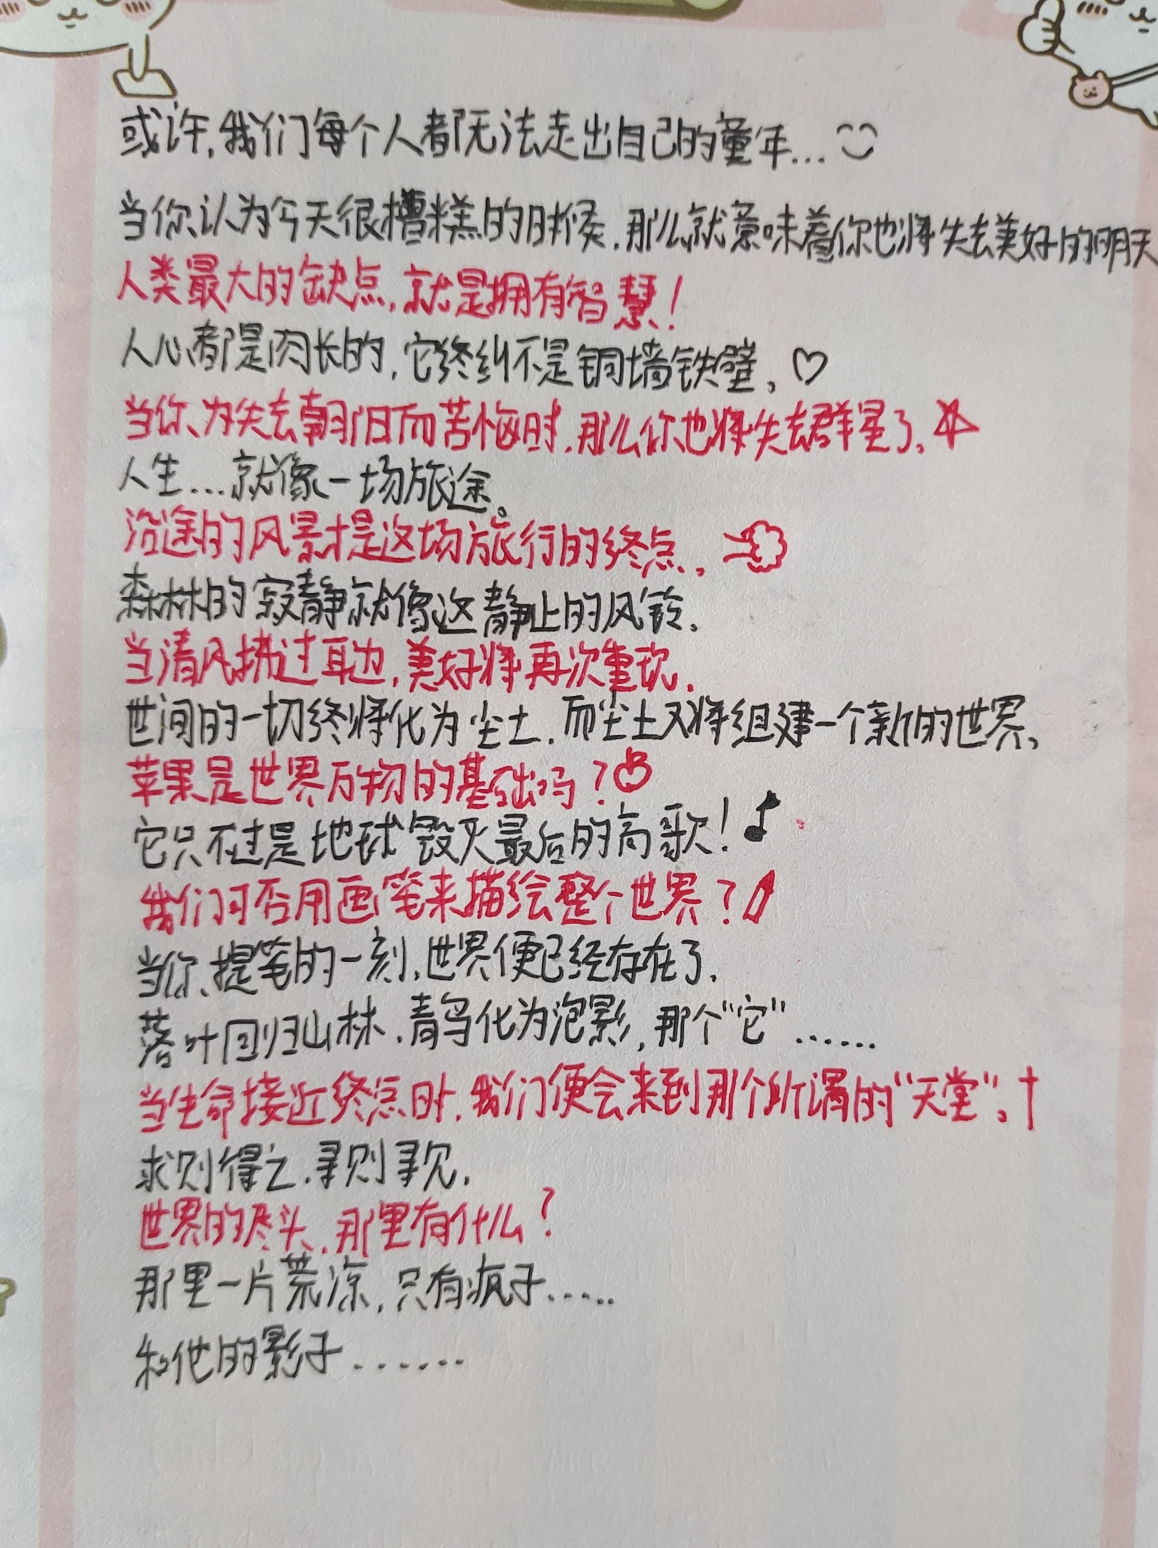 或许,我们每个人都无法走出自己的童年...
当你认为今天很糟糕的时候,那么就意味着你也将失去美好的明天
人类最大的缺点,就是拥有智慧!
人心都是肉长的,它终纠不是铜墙铁壁。♡
当你为失去朝阳而苦恼时,那么你也将失去群星了。☆
人生...就像一场旅途。
沿途的风景才是这场旅行的终点。
森林的寂静就像这静止的风铃。
当清风拂过耳边,美好将再次重现。
世间的一切终将化为尘土,而尘土又将组建一个新的世界。
苹果是世界万物的基础吗?
它只不过是地球毁灭最后的高歌!♪
我们可否用画笔来描绘整个世界?
当你提笔的一刻,世界便已经存在了。
落叶回归山林,青鸟化为泡影,那个“它”......
当生命接近终点时,我们便会来到那个所谓的“天堂”。†
求则得之,寻则寻见。
世界的尽头,那里有什么?
那里一片荒凉,只有疯子.....
和他的影子......